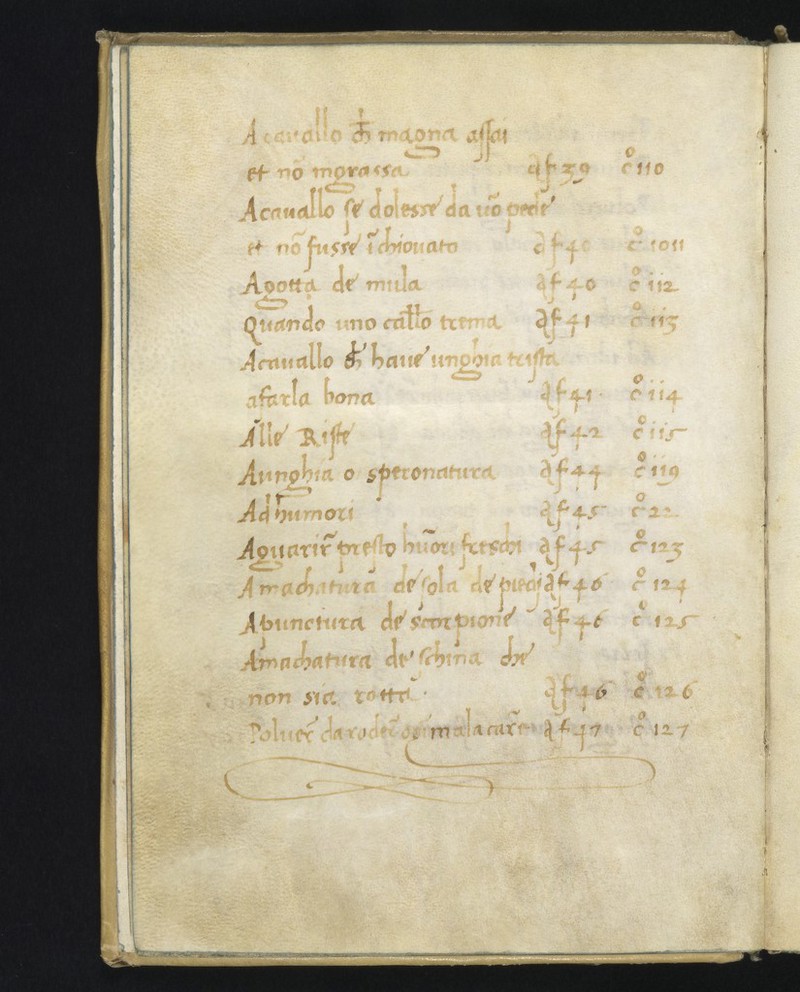 A cauallo ch̄ magna assai
et nō ingrassa af 39 c° 110
A cauallo se dolesse da uō pede
et nō fusse ī chiouato af 40 c° 1011
A gotta de mula af 40 c° 112
Quando uno cało trema af 41 c° 113
A cauallo ch̄ haue unghia trista
afarla bona af 41 c° 114
Alle Riste af 42 c° 115
A unghia o speronatura af 44 c° 119
Ad humori af 45 c° 22
A guarir̄ presto hūori freschi af 45 c° 123
A machatura de sola de piedj af 46 c° 124
A punctura de scorpione af 46 c° 125
A machatura de schina che
non sia rotta af 46 c° 126
Poluer̄ da roder̄ ogi mala carne af 47 c° 127